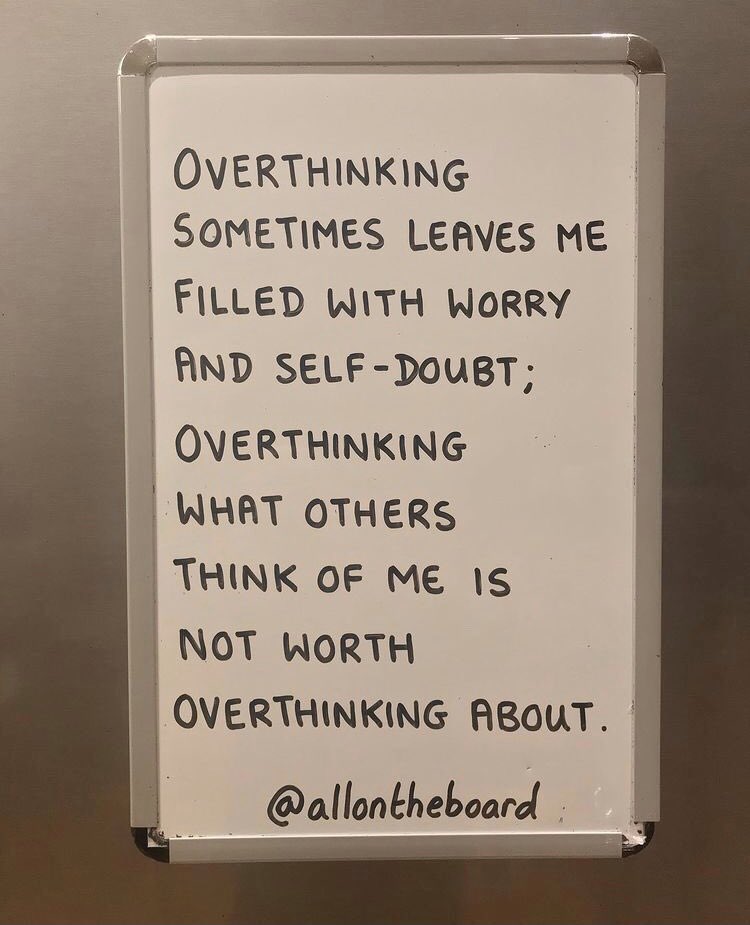 OVERTHINKING
SOMETIMES LEAVES ME
FILLED WITH WORRY
AND SELF-DOUBT;
OVERTHINKING
WHAT OTHERS
THINK OF ME IS
NOT WORTH
OVERTHINKING ABOUT.
@allontheboard